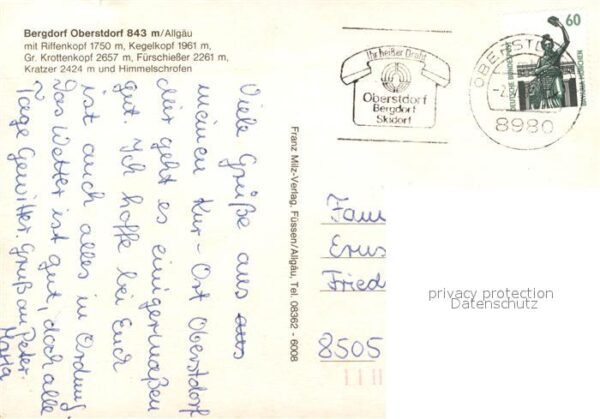 Bergdorf Oberstdorf 843 m/Allgäu
mit Riffenkopf 1750 m, Kegelkopf 1961 m,
Gr. Krottenkopf 2657 m, Fürschießer 2261 m,
Kratzer 2424 m und Himmelschrofen
Viele Grüße aus aus
meinen Kur-Ort Oberstdorf
Mir geht es einigermaßen
gut. Ich hoffe bei Euch
ist auch alles in Ordnung
Das Wetter ist gut, doch alle
2 Tage Gewitter. Gruß an Peter.
Maria
Franz Milz-Verlag, Füssen/Allgäu, Tel. 08362 - 6008
Ihr heißer Draht
Oberstdorf
Bergdorf
Skidorf
OBERSTD
8980
60
DEUTSCHE BUNDESPOST
BAVARIA MÜNCHEN
Fam
Erns
Fried
8505
privacy protection
Datenschutz